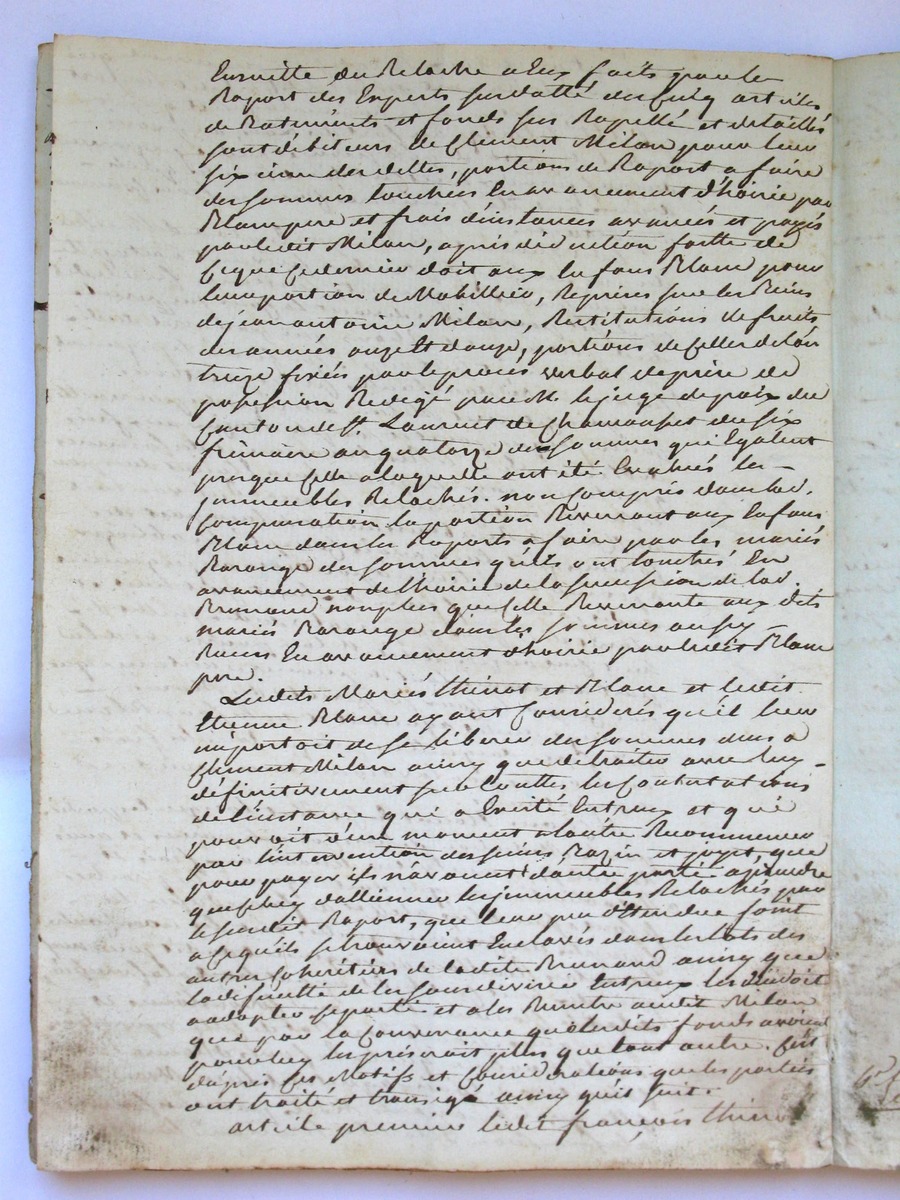 Ensuitte du Relache a Eux faits par le
Raport des Experts susdatté des cinq articles
de Batements et fonds sus Rapellé et detaillés
sont debiteurs de Clement Milan pour leur
six des dettes, portions de Raport a faire
des sommes touchées En avancement d'hoirie par
Blanc pere et frais d'instances avancés et payés
par ledit Milan, apres deduction faitte de
Ce que Ce dernier doit aux Enfans Blanc pour
leur portion de Mobillier, Reprises sur les Biens
de jean antoine Milan, Restitutions de fruits
des années onze Et douze, portions de Celles de l'an
treize fixés par le procés verbal de prise de
possession Redigé par M. le juge de paix du
Canton de St. Laurent de Chamousset du six
frimaire an quatorze des sommes qui Egalent
presque Celle a laquelle ont été Evalués les
jmmeubles Relachés. non Compris dans lad.
Comparation la portion Revenant aux Enfans
Blanc dans les Raports a faire par les mariés
Barange des sommes qu'ils ont touchés En
avancement de l'hoirie de la succession de lad.
Brunand non plus que Celle Revenante aux dits
mariés Barange dans les sommes aussy
Recus En avancement d'hoirie par ledit Blanc
pere.
Lesdits Mariés thinot et Blanc et ledit
Etienne Blanc ayant Considerés qu'il leur
importoit de se liberer des sommes dues a
Clement Milan ainsy que de traiter avec luy
definitivement sur touttes les Contestations
de l'instance qui a Existé Entr'eux et qui
pourroit d'un moment a l'autre Recommencer
par l'intervention des sieurs Bazin et joyet, que
pour payer ils n'avoient d'autre partie a prendre
que Celuy d'alliener les jmmeubles Relachés par
le susdit Raport, que leur peu d'Etendue joint
a Ce qu'ils se trouvoient Enclavés dans les lots des
autres Coheritiers de ladite Brunand ainsy que
la difficulté de les soudiviser Entr'eux les
a adopter Ce parti et a les Remettre audit Milan
que par la Convenance que lesdits fonds avoient
pour luy les prisoit plus que tout autre. C'est
d'apres Ces Motifs et Considerations que les parties
ont traité et transigé ainsy qu'il suit.
article premier ledit françois thinot